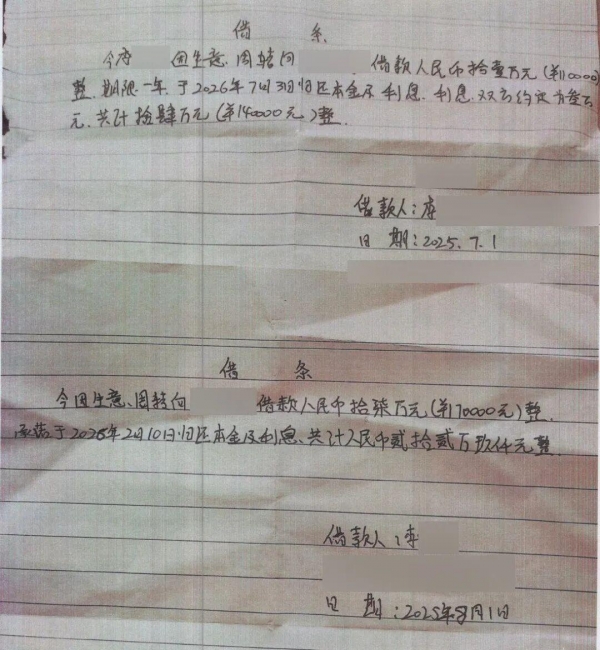 借 条
今 因生意周转向 借款人民币拾壹万元(¥110000)
整.期限一年于2026年7月31日归还本金及利息.利息双方约定为叁万
元.共计拾肆万元(¥140000元)整.
借款人:李
日 期:2025.7.1
借 条
今因生意、周转向 借款人民币拾柒万元(¥170000元)整.
承诺于2026年2月10日归还本金及利息、共计人民币贰拾贰万玖仟元整.
借款人:李
日 期:2025年8月1日